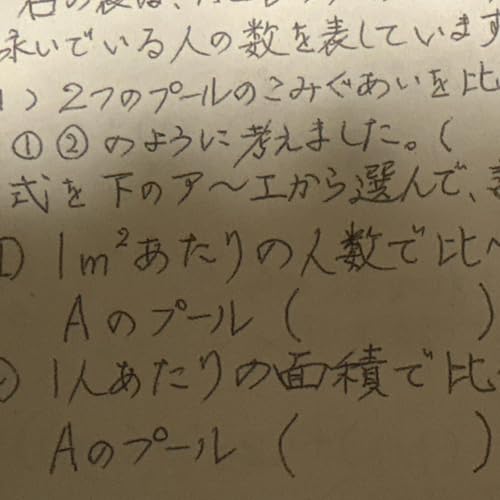 右の表は、
泳いでいる人の数を表しています
1) 2つのプールのこみぐあいを比
①②のように考えました。(
式を下のア〜エから選んで、
1) 1m²あたりの人数で比べ
Aのプール ( )
1人あたりの面積で比
Aのプール ( )